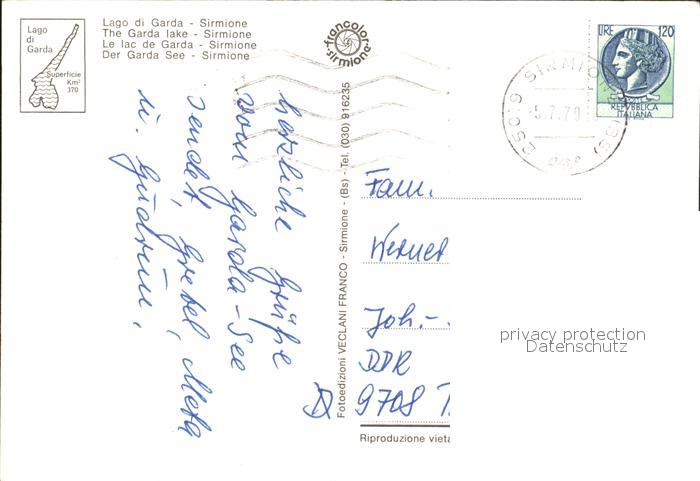 Lago
di
Garda
Superficie
Km²
370
Lago di Garda - Sirmione
The Garda lake - Sirmione
Le lac de Garda - Sirmione
Der Garda See - Sirmione
francolor
sirmione
LIRE 120
REPVBBLICA
ITALIANA
25019 SIRMIONE (BS)
5.7.79
herzliche Grüße
vom Garda-See
sendet, Gretel, Meta
u. Gudrun.
Fotoedizioni VECLANI FRANCO - Sirmione - (Bs) - Tel. (030) 916235
Fam.
Werner
Joh.-
DDR
9708 T
privacy protection
Datenschutz
Riproduzione vieta